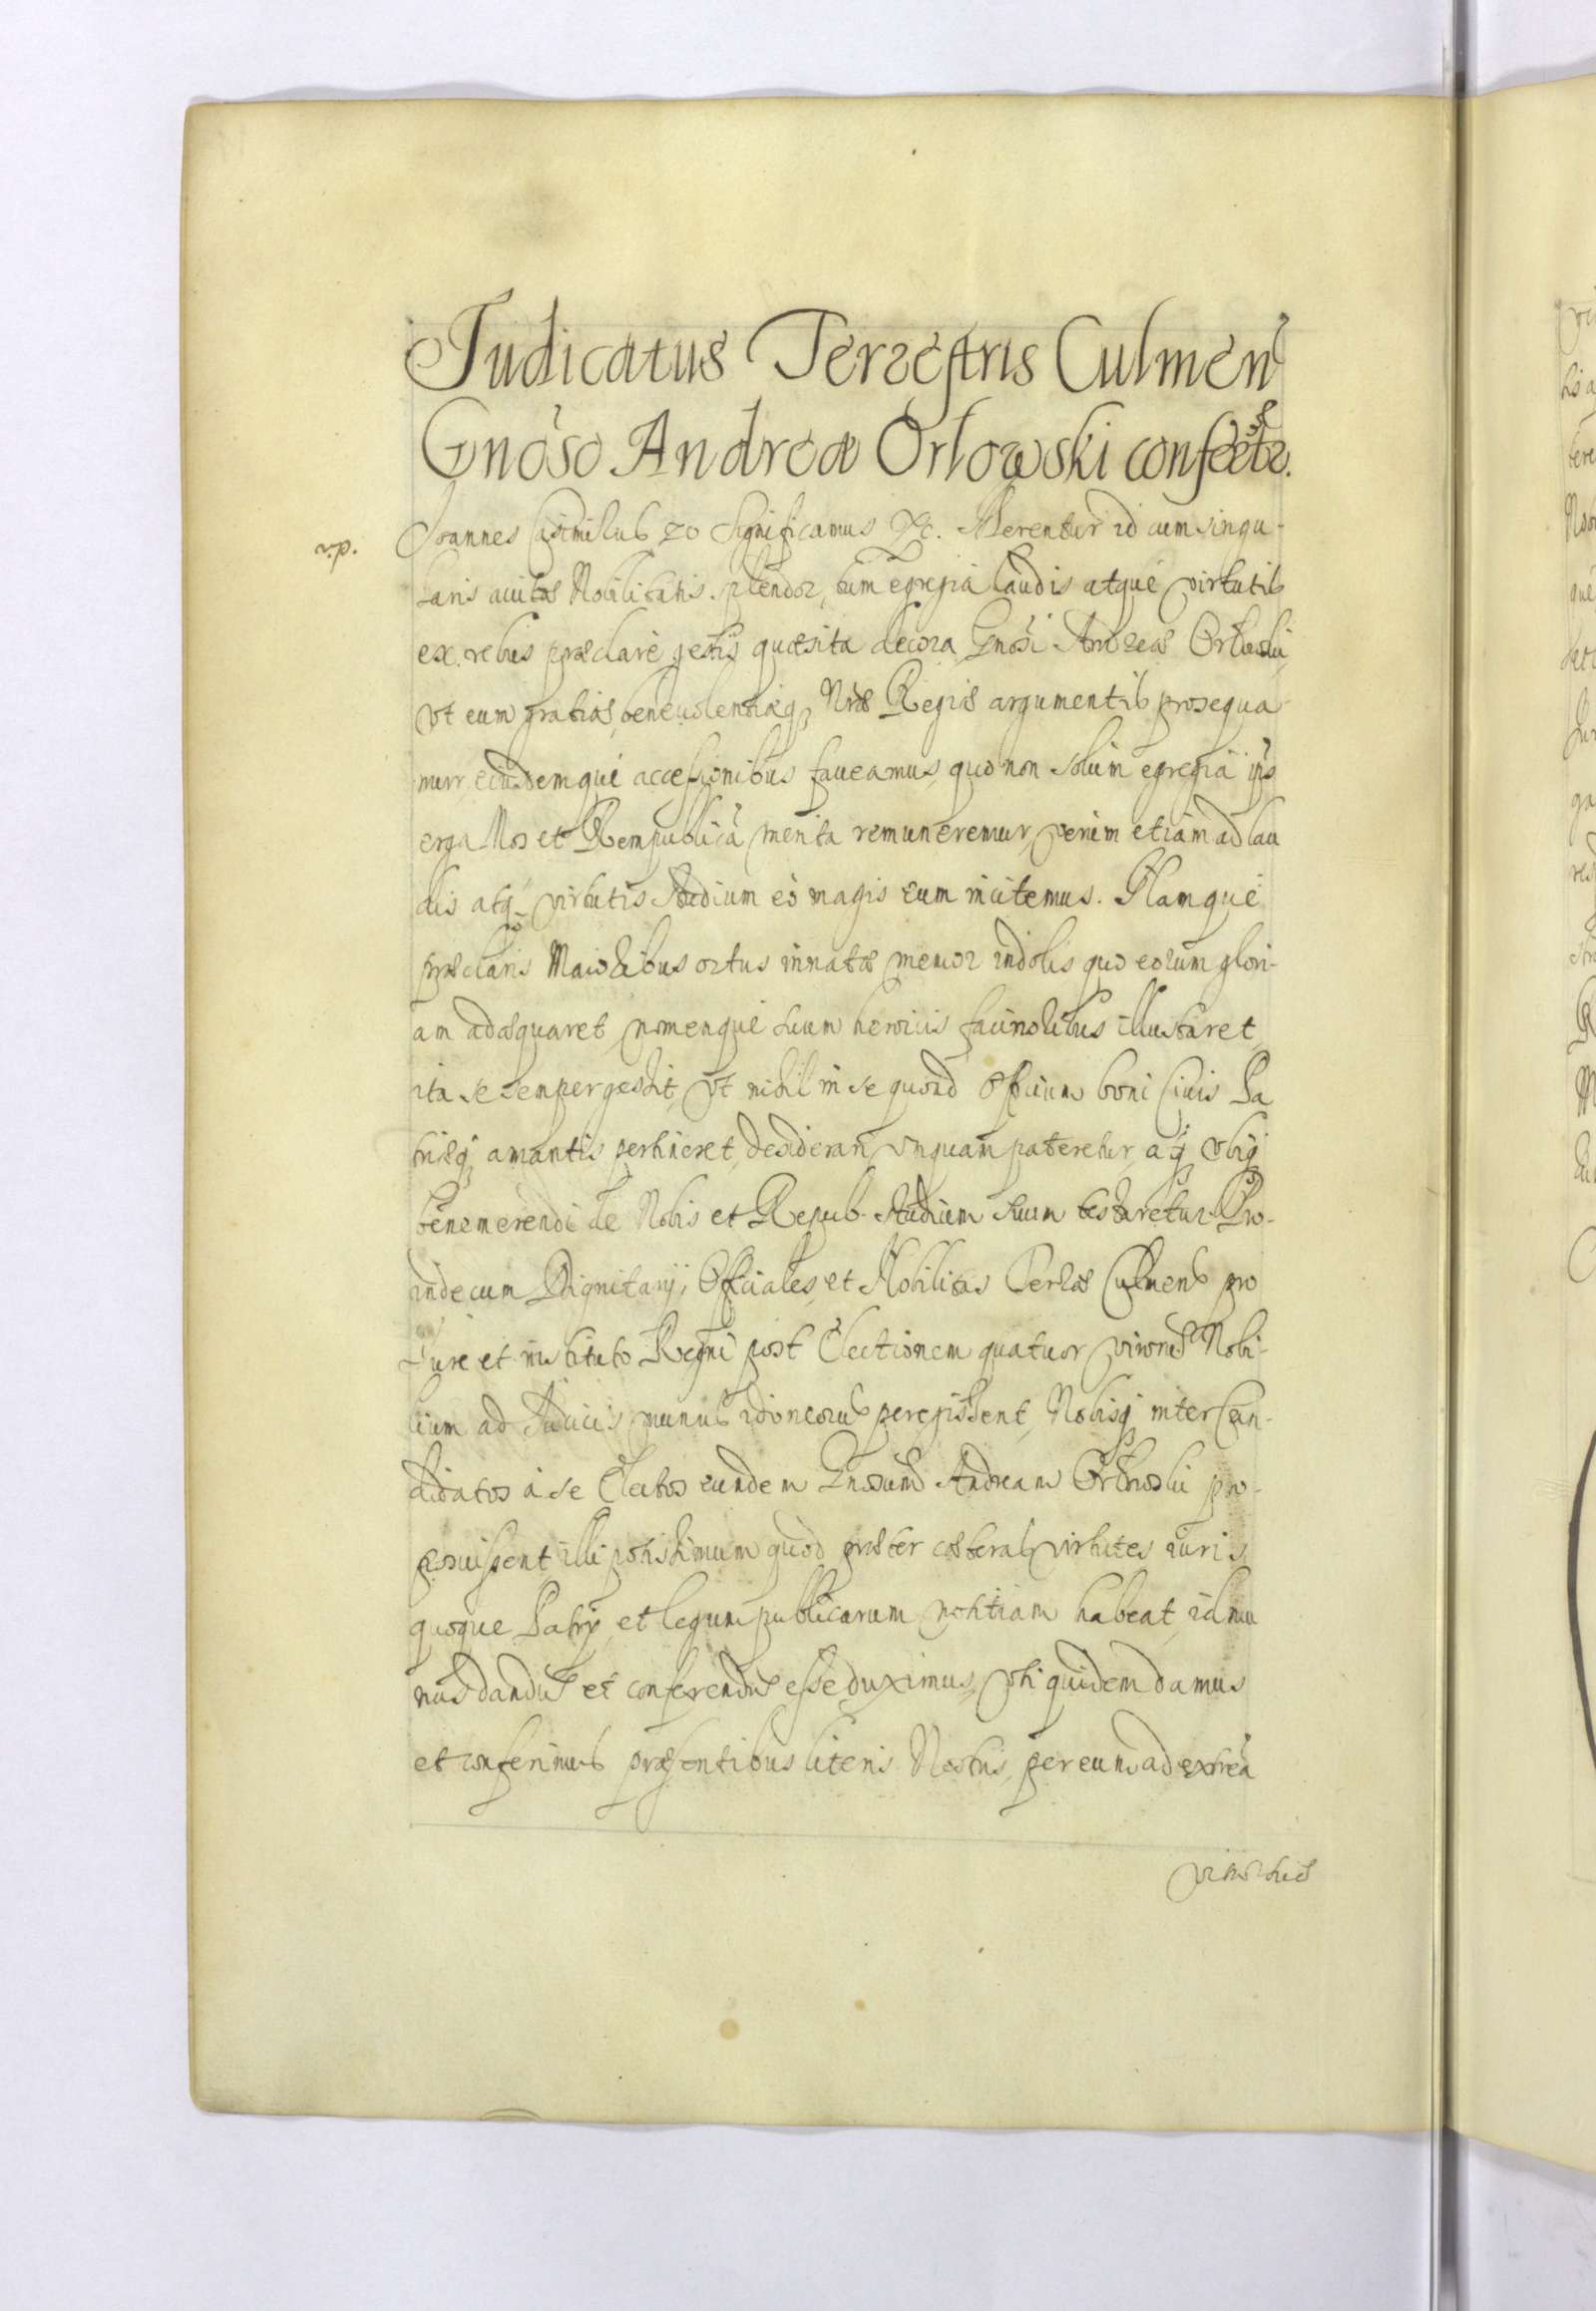 Judicatus Terrestris Culmen
Gnoso Andreæ Orlowski confertr.
r.p.
Joannes Casimirus &c Significamus &c. Merentur id cum singu-
laris auitæ Nobilitatis splendor, tum egregia laudis atque virtutis
ex rebus præclarè gestis quæsita decora Gnosi Andreæ Orlowski
vt eum gratiæ, beneuolentiæq3 Nræ Regiæ argumentis prosequa-
mur, eiusdemque accessionibus faueamus, quo non solum egregia ips
erga Nos et Rempublicã merita remuneremur, verum etiam ad lau
dis atq3 virtutis studium eò magis eum incitemus. Namque
præclaris Maioribus ortus innatæ memor indolis quo eorum glori-
am adæquaret, nomenque suum heroicis facinoribus illustraret
ita se semper gessit, vt nihil in se quoad Officium boni Ciuis Pa
triæq3 amantis pertineret, desiderari vnquam pateretur, aq3 vbiq3
benemerendi de Nobis et Repub. studium suum testaretur. Pro-
inde cum Dignitarij, Officiales, et Nobilitas Terræ Culmens pro
Jure et instituto Regni post Electionem quatuor virorũ Nobi-
lium ad Judicis munus idoneorũ peregissent, Nobisq3 inter Can-
didatos à se Electos eundem Gnosum Andream Orlowski pro-
posuissent, illi potissimum quod præter cæteras virtutes iuris
quoque Patrij et legum publicarum notitiam habeat, id mu
nus dandũ et conferendũ esse duximus, vti quidem damus
et conferimus præsentibus literis Nostris, per eum ad extrea